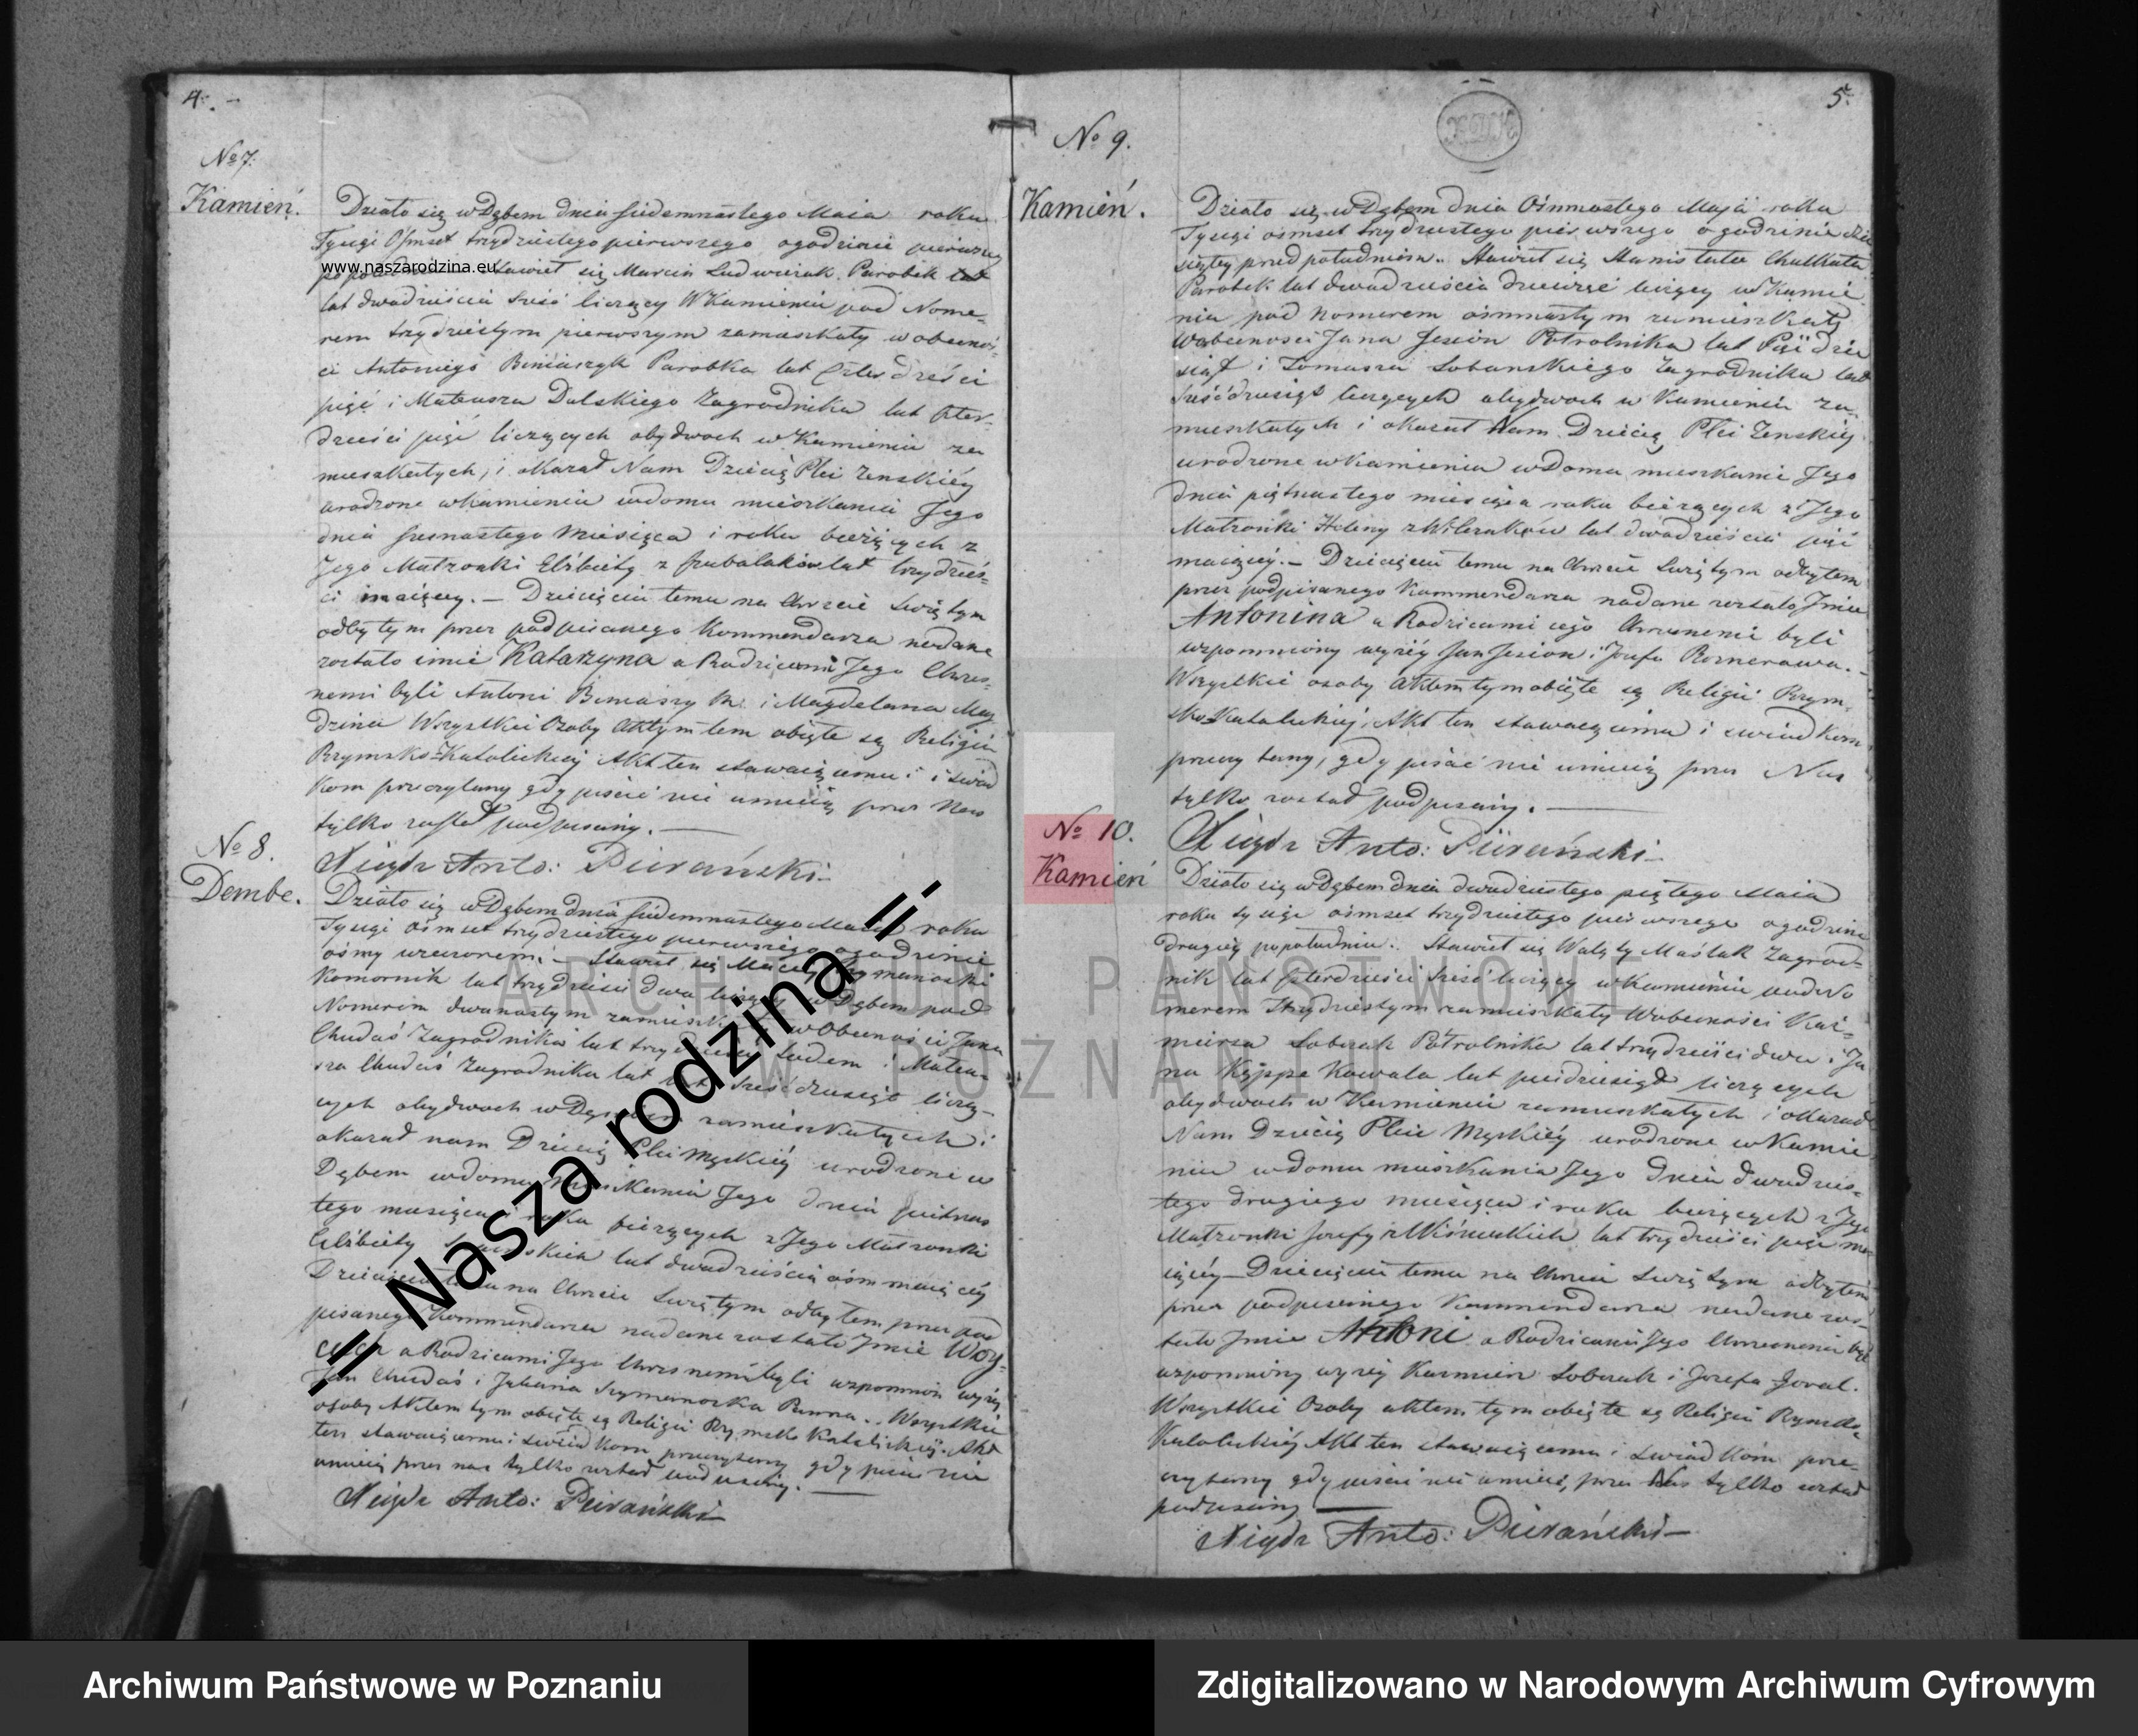 4.
No 7.
Kamień.
Działo się w Dębem dnia siedemnastego Maia roku
Tysiąc Ośmset trzydziestego pierwszego o godzinie pierwszey
www.naszarodzina.eu
Stawił się Marcin Ludwiczak Parobek
lat dwadzieścia sześć liczący W Kamieniu pod Nome-
rem trzydziestym pierwszym zamieszkały w obecnoś-
ci Antoniego Beniaszyk Parobka lat Czterdzieści
pięć i Mateusza Dulskiego Zagrodnika lat Czter-
dzieści pięć liczących obydwoch w Kamieniu za
mieszkałych, i okazał Nam Dziecię Płci Zenskiey
urodzone w Kamieniu w domu mieszkania Jego
dnia szesnastego Miesiąca i roku bieżących z
Jego Małżonki Elżbiety z lat trzydzieś-
ci maiącey. — Dziecięciu temu na Chrzcie Swiętym
odbytym przez podpisanego Kommendarza nadane
zostało imie Katarzyna a Rodzicami Jego Chrzes-
nemi byli Antoni i Magdalena
Wszystkie Osoby Aktym tem obięte są Religii
Rzymsko Katolickiey Akt ten stawaiącemu i swiad
kom przeczytany gdy pisać nie umieią przez Nas
tylko został podpisany. —
Xiądz Anto: Piirański
No 8.
Dembe.
Działo się w Dębem dnia siedemnastego Maia roku
Tysiąc ośmset trzydziestego pierwszego o godzinie
ósmy wieczorem. — Stawił się Maciey
Komornik lat trzydzieści dwa liczący w Dębem pod
Nomerem dwunastym w Obecności Jana
Chudaś Zagrodnika lat siedem i Mateu-
sza Chudaś Zagrodnika lat sześćdziesiąt liczą-
cych obydwoch w zamieszkałych i
okazał nam Dziecię Płci Męskiéy urodzone w
Dębem w domu mieszkania Jego dnia piętnas
tego miesiąca i roku bieżących z Jego Małżonki
Elżbiety lat dwadzieścia ośm maiącéy
Dziecięciu temu na Chrzcie Swiętym odbytem przez pod
pisanego Kommendarza nadane zostało Jmie Woy-
ciech a Rodzicami Jego Chrzesnemi byli wspomnion wyżéy
Jan Chudaś i Juliana Szymanoska Panna. Wszystkie
osoby Aktem tym obięte są Religii Rzymsko Katolickiéy. Akt
ten stawaiącemu i swiadkom przeczytany gdy pisać nie
umieią przez nas tylko został podpisany. —
Xiądz Anto: Piirański
-||- Nasza rodzina -||-
5.
No 9.
Kamień.
Działo się w Dębem dnia Ośmnastego Maja roku
Tysiąc ośmset trzydziestego pierwszego o godzinie dzie
siątey przed południem. Stawił się Stanisław
Parobek lat dwadzieścia dziewięć liczący w Kamie
niu pod Nomerem ośmnastym zamieszkały
W obecności Jana Jesion Półrolnika lat Pięćdzie
siąt i Tomasza Sobanskiego Zagrodnika lat
Sześćdziesiąt liczących obydwoch w Kamieniu za-
mieszkałych i okazał Nam Dziecię Płci Zenskiéy
urodzone w Kamieniu w Domu mieszkania Jego
dnia piętnastego miesiąca roku bieżących z Jego
Małżonki Heleny lat dwadzieścia pięć
maiącéy. — Dziecięciu temu na Chrzcie Swiętym odbytem
przez podpisanego Kommendarza nadane zostało Jmie
Antonina a Rodzicami iego Chrzesnemi byli
wspomniony wyżéy Jan Jesion i Józefa
Wszystkie osoby Aktem tym obięte są Religii Rzym-
sko Katolickiéj. Akt ten stawaiącemu i swiadkom
przeczytany, gdy pisać nie umieią przez Nas
tylko został podpisany. —
Xiądz Anto: Piirański —
No 10.
Kamień
Działo się w Dębem dnia dwudziestego piątego Maia
roku tysiąc ośmset trzydziestego pierwszego o godzinie
drugiéy popołudniu. Stawił się Walęty Maślak Zagrod-
nik lat czterdzieści sześć liczący w Kamieniu pod No
merem Trzydziestym zamieszkały W obecności Kaź-
mierza Sobczak Półrolnika lat trzydzieści dwa i Ja
na Kowala lat pięćdziesiąt liczących
obydwoch w Kamieniu zamieszkałych i okazał
Nam Dziecię Płci Męskiéy urodzone w Kamie
niu w domu mieszkania Jego dnia dwudzies-
tego drugiego miesiąca i roku bieżących z Jego
Małżonki Jozefy lat trzydzieści pięć ma
iącéy — Dziecięciu temu na Chrzcie Swiętym odbytem
przez podpisanego Kommendarza nadane zos-
tało Jmie Antoni a Rodzicami Jego Chrzesnemi byli
wspomniony wyżéy Kazmierz Sobczak i Jozefa
Wszystkie Osoby aktem tym obięte są Religii Rzymsko
Katolickiéy Akt ten stawaiącemu i swiadkom prze-
czytany gdy pisać nie umieią, przez Nas tylko został
podpisany —
Xiądz Anto: Piirański —
ARCHIWUM PAŃSTWOWE
W POZNANIU
Archiwum Państwowe w Poznaniu
Zdigitalizowano w Narodowym Archiwum Cyfrowym